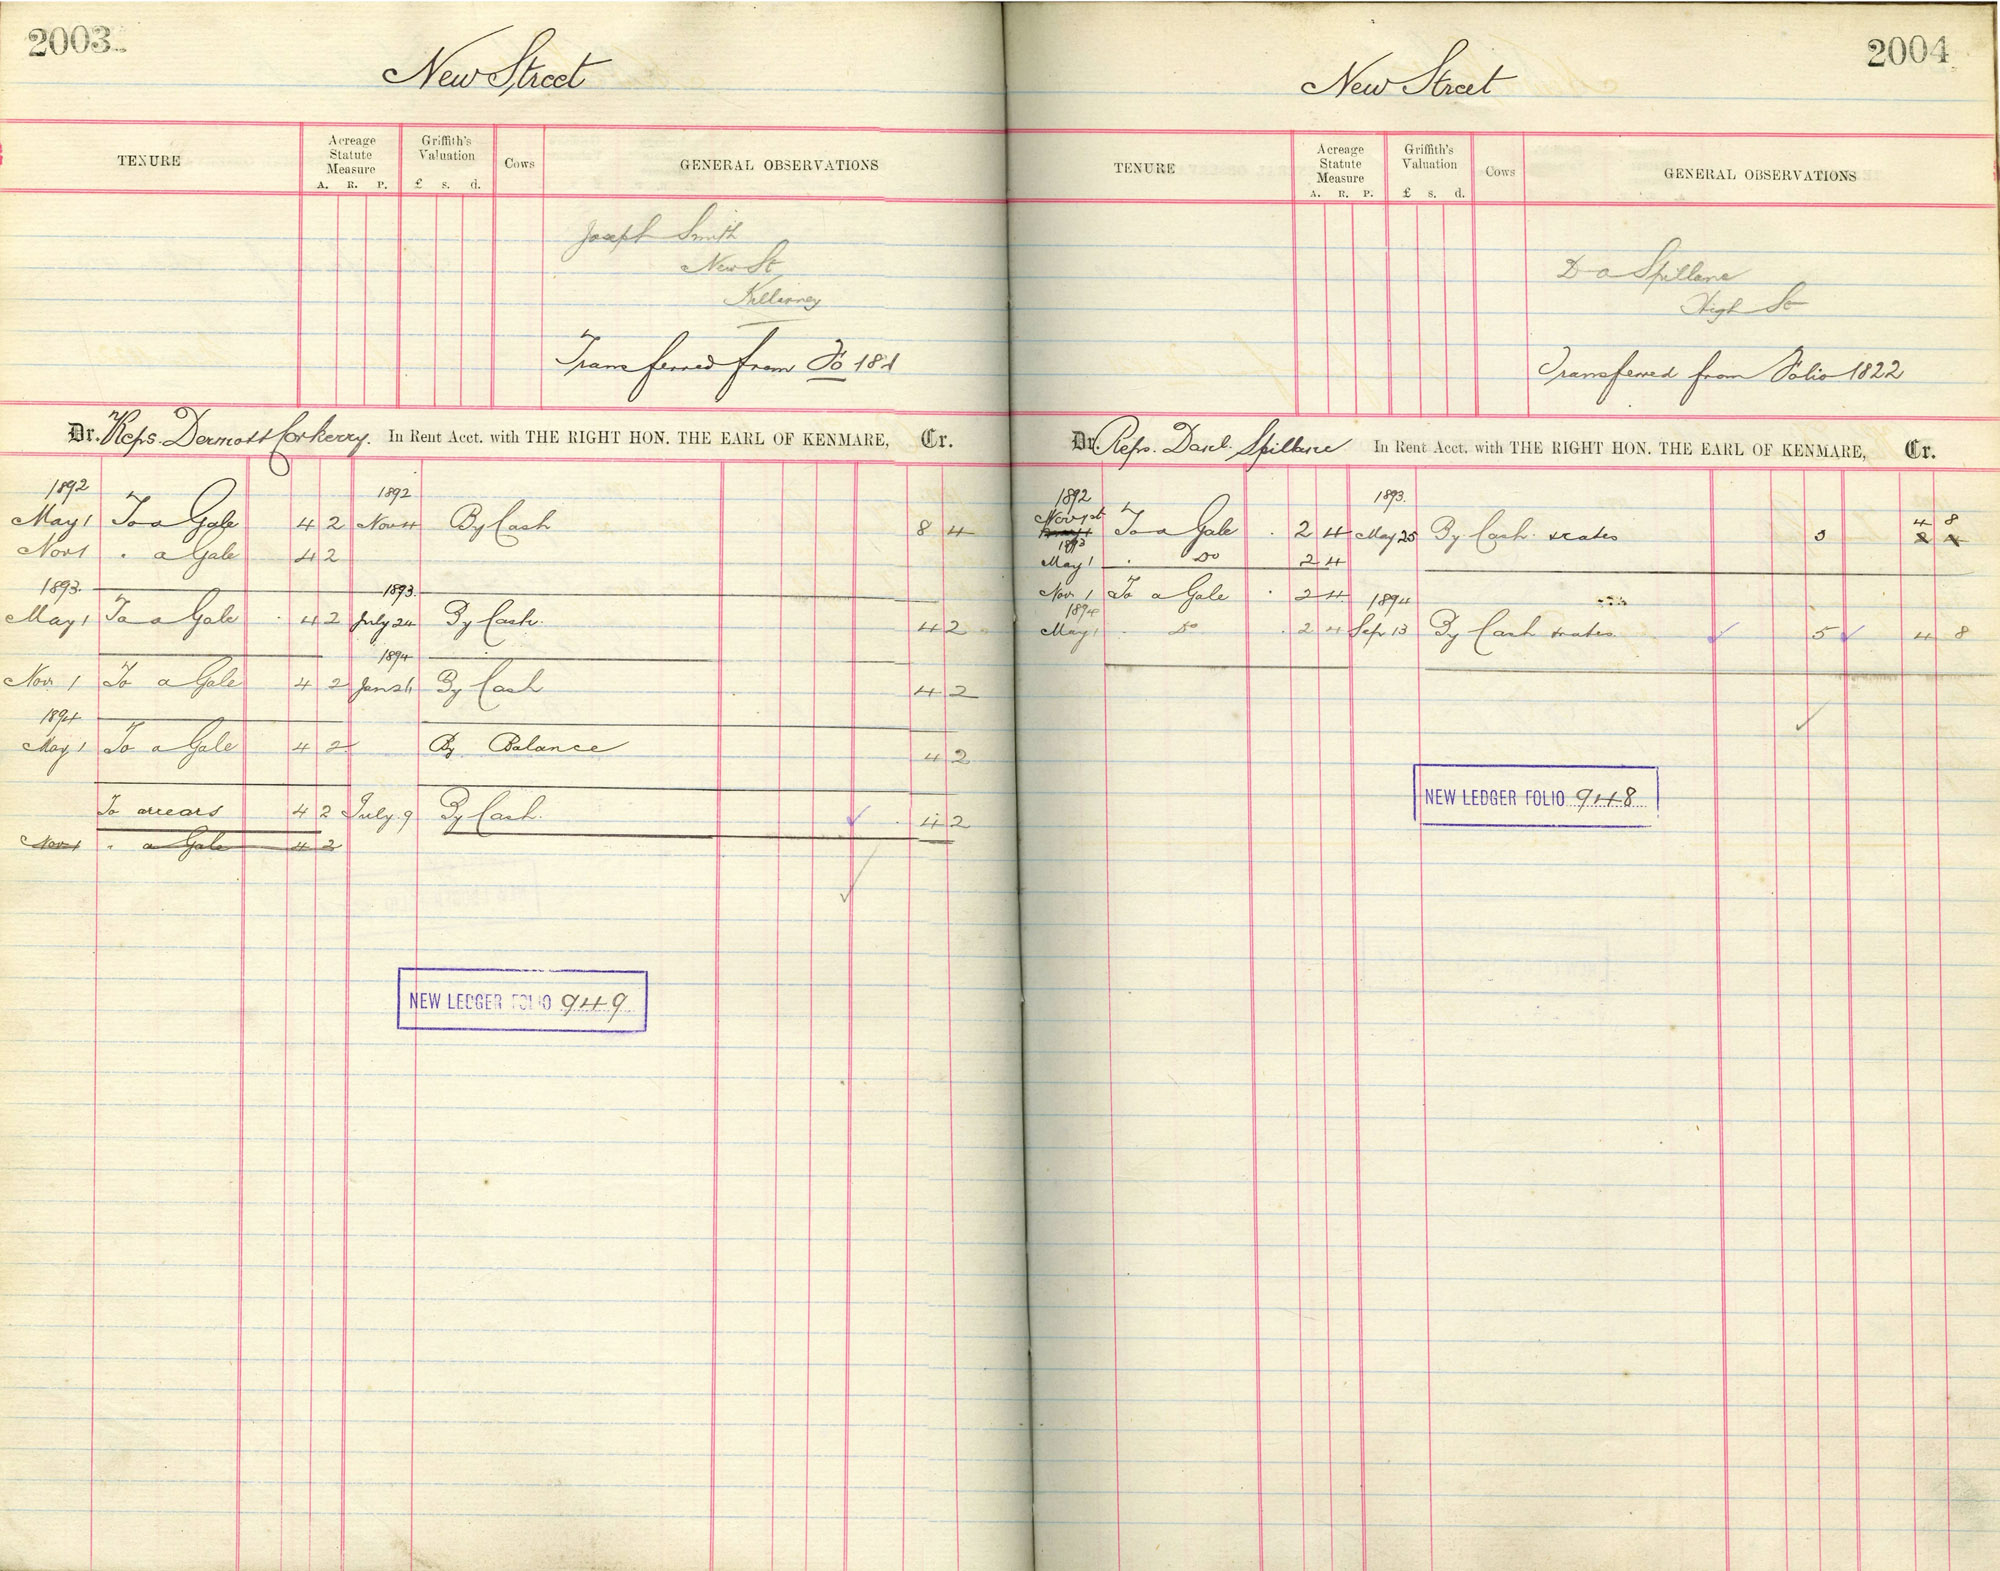 2003
New Street
TENURE
Acreage Statute Measure
A. R. P.
Griffith's Valuation
£ s. d.
Cows
GENERAL OBSERVATIONS
Joseph Smith
New St
Killarney
Transferred from Fo 181
Dr. Reps. Dermott Corkerry. In Rent Acct. with THE RIGHT HON. THE EARL OF KENMARE, Cr.
1892 1892
May 1 To a Gale 4 2 Nov 4 By Cash 8 4
Nov 1 " a Gale 4 2
1893. 1893.
May 1 To a Gale 4 2 July 24 By Cash. 4 2
1894
Nov. 1 To a Gale 4 2 Jan 26 By Cash 4 2
1894
May 1 To a Gale 4 2 By Balance 4 2
To arrears 4 2 July 9 By Cash. 4 2
Nov 1 " a Gale 4 2
NEW LEDGER FOLIO 949
2004
New Street
TENURE
Acreage Statute Measure
A. R. P.
Griffith's Valuation
£ s. d.
Cows
GENERAL OBSERVATIONS
D a Spillane
High St
Transferred from Folio 1822
Dr. Reps. Danl. Spillane In Rent Acct. with THE RIGHT HON. THE EARL OF KENMARE, Cr.
1892 1893.
Nov 1st To a Gale 2 4 May 25 By Cash & rates 5 4 8
1893
May 1 " Do 2 4
Nov. 1 To a Gale 2 4 1894
1894
May 1 " Do 2 4 Sep 13 By Cash & rates 5 4 8
NEW LEDGER FOLIO 948